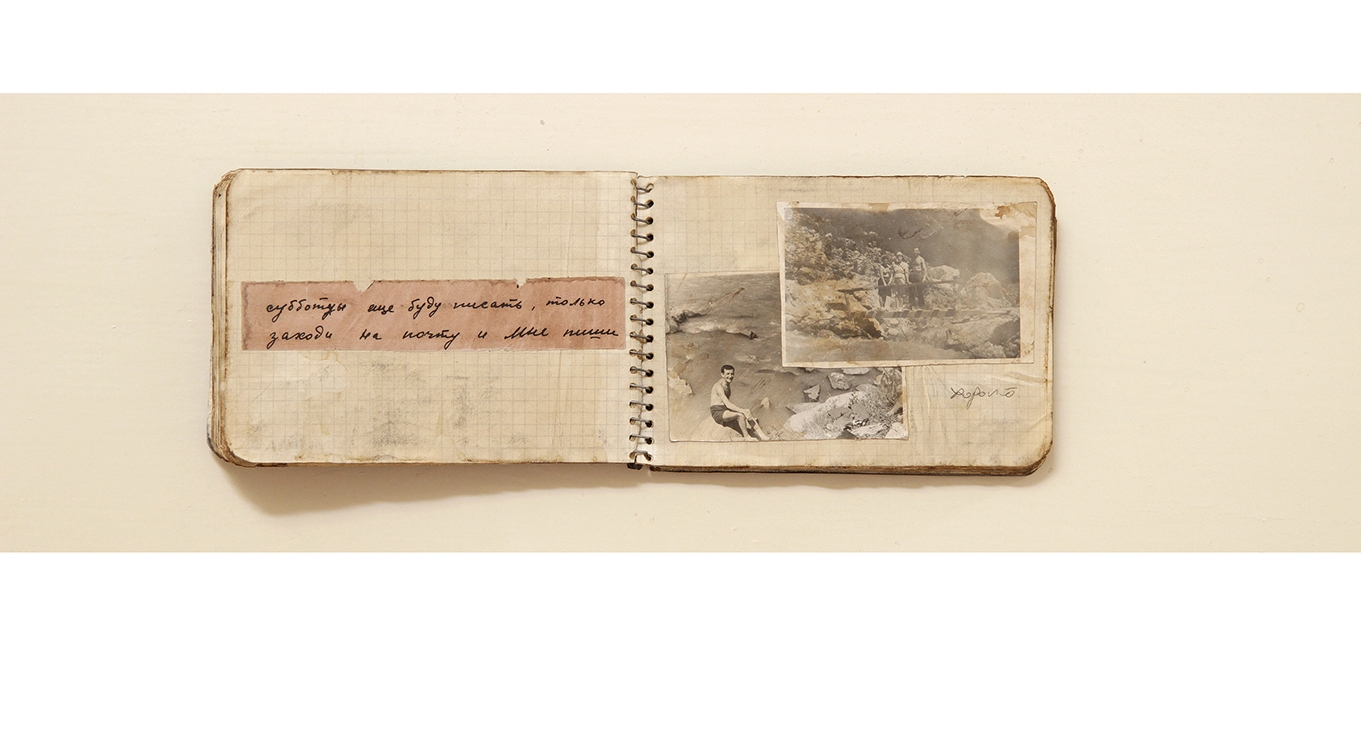 субботы еще буду писать, только
заходи на почту и мне пиши
хорошо